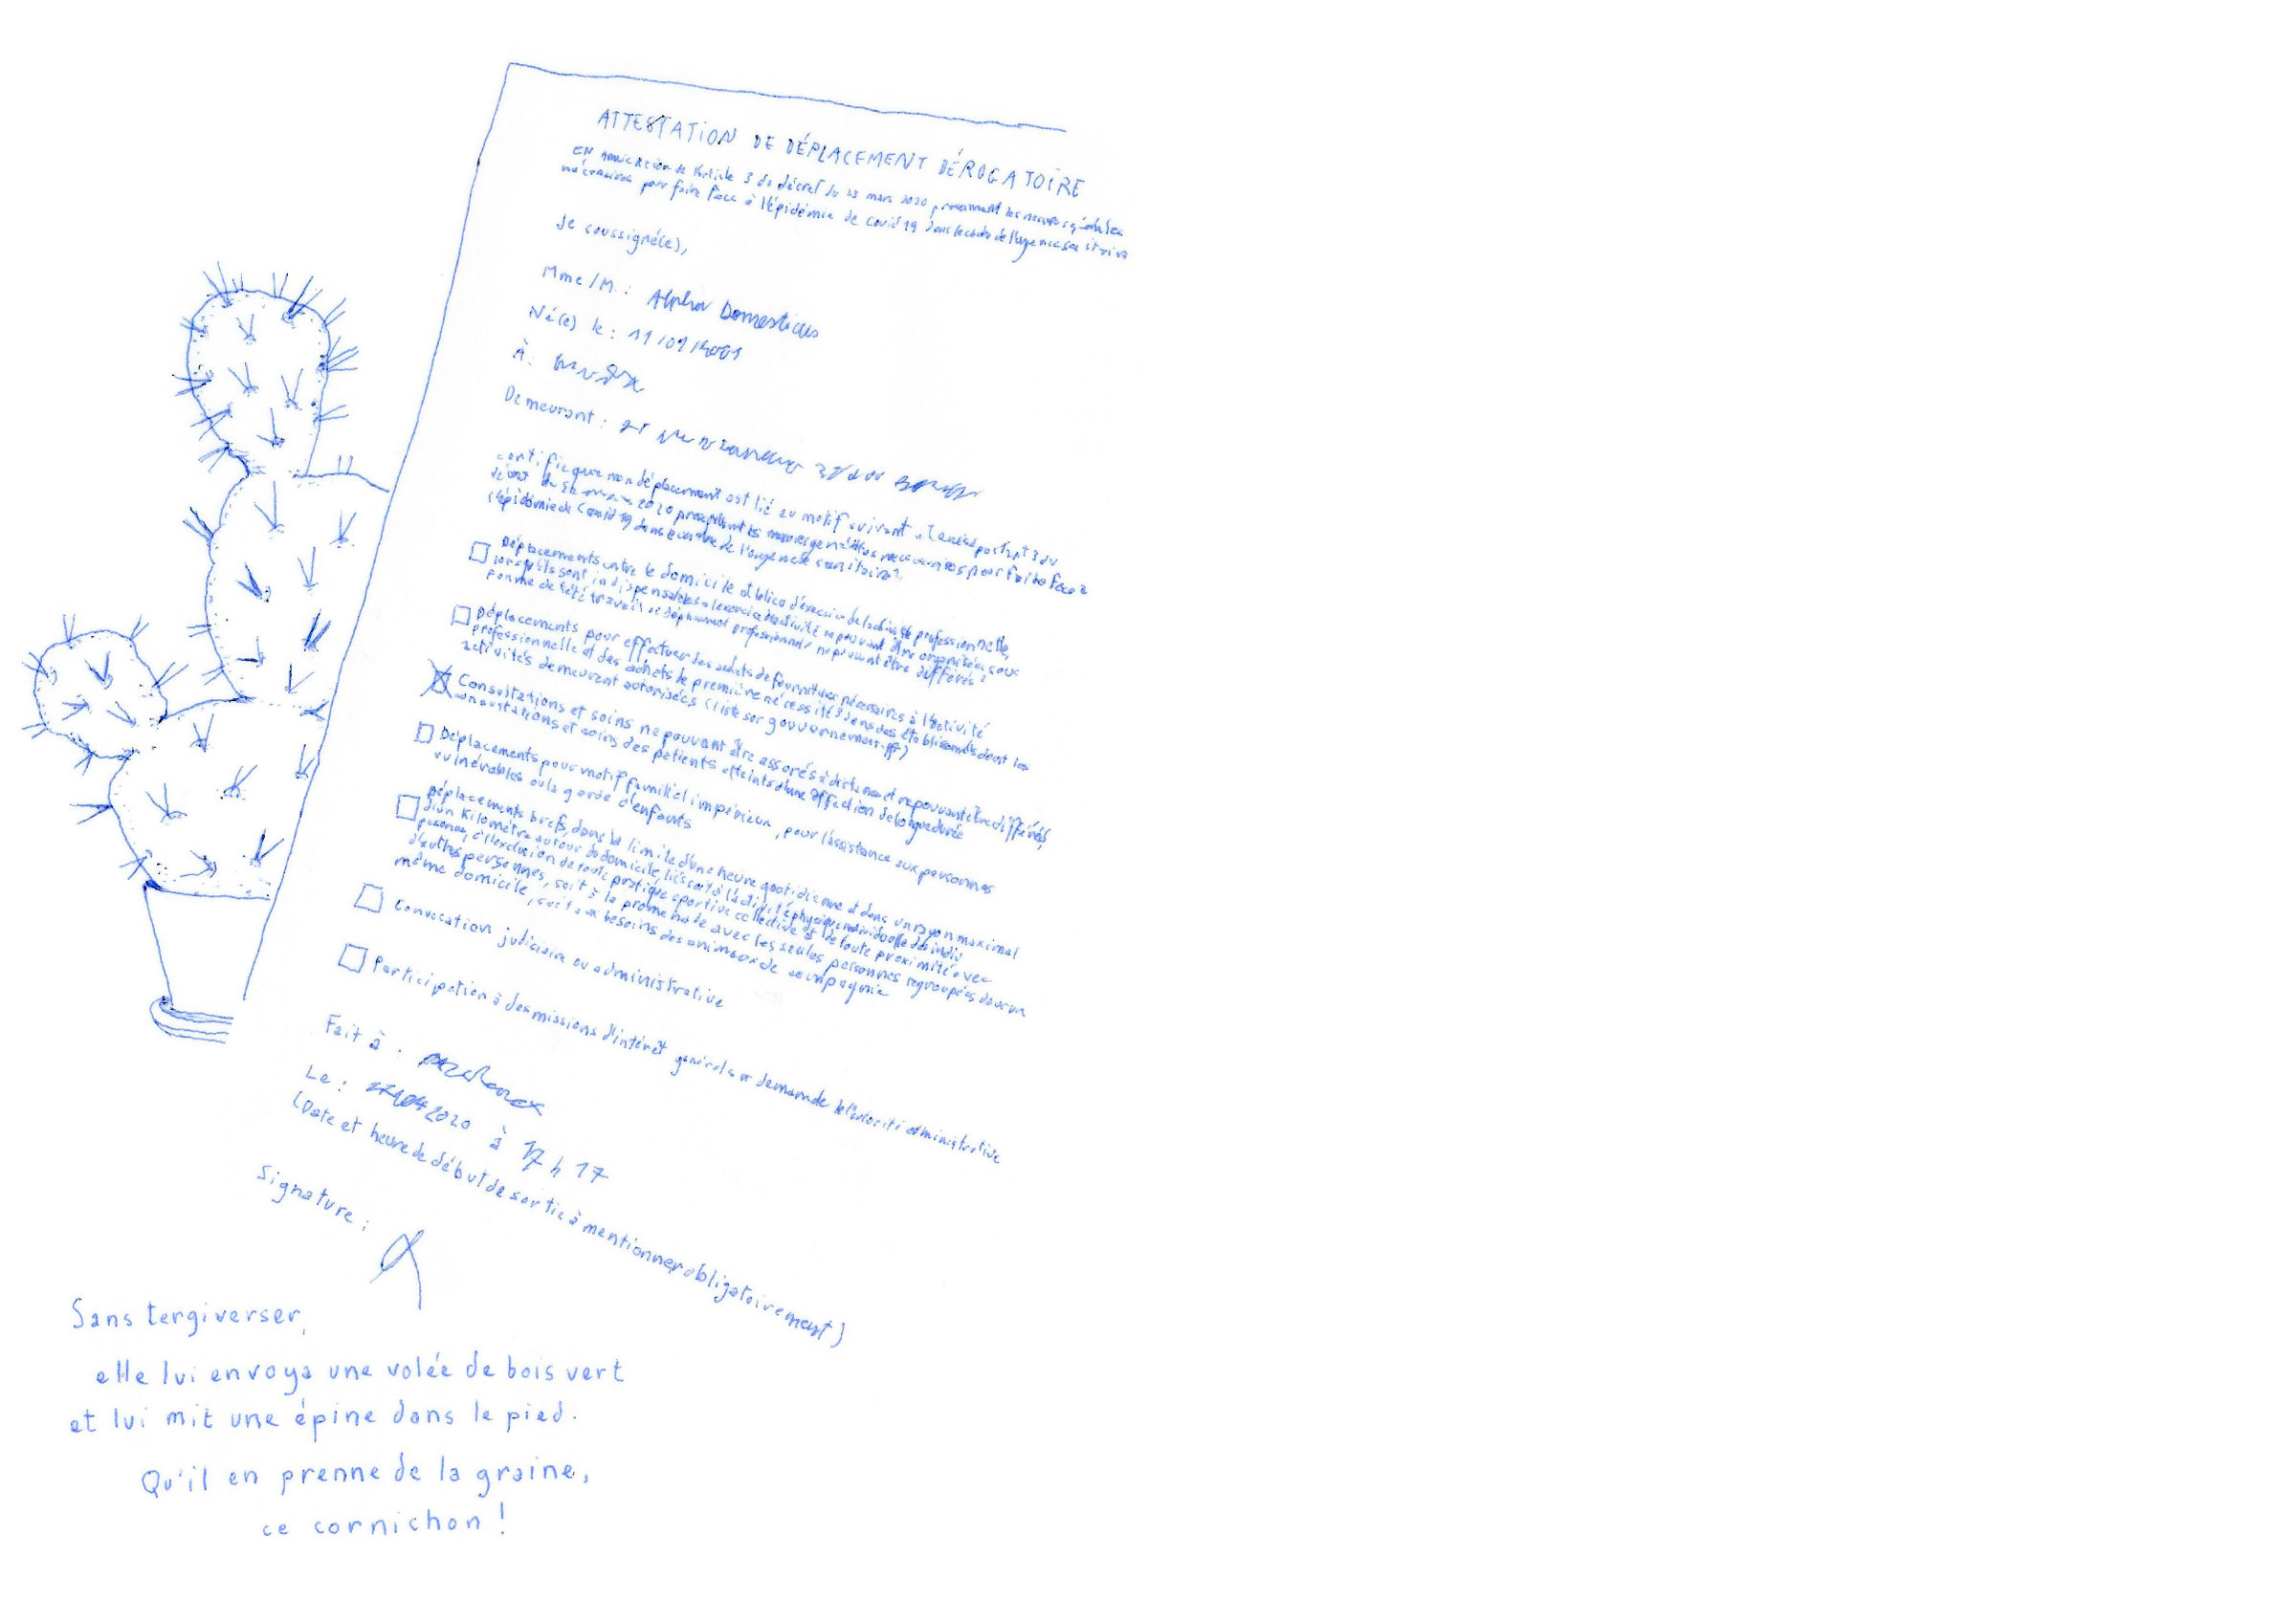 ATTESTATION DE DÉPLACEMENT DÉROGATOIRE
EN APPLICATION de l'article 3 du décret du 23 mars 2020 prescrivant les mesures générales
nécessaires pour faire face à l'épidémie de covid 19 dans le cadre de l'urgence sanitaire
Je soussigné(e),
Mme/M. : Alpha Domesticus
Né(e) le : 11/01/
À :
Demeurant :
certifie que mon déplacement est lié au motif suivant par l'art 3 du
décret du 2020 prescrivant les mesures générales nécessaires pour faire face à
l'épidémie de Covid 19 dans le cadre de l'urgence sanitaire
Déplacements entre le domicile et le lieu d'exercice de l'activité professionnelle,
lorsqu'ils sont indispensables à l'exercice d'activité ne pouvant être organisées sous
forme de télétravail déplacement professionnels ne pouvant être différés
Déplacements pour effectuer des achats de fournitures nécessaires à l'activité
professionnelle et des achats de première nécessité dans des établissements dont les
activités demeurent autorisées (liste sur gouvernement.fr)
Consultations et soins ne pouvant être assurés à distance et ne pouvant être différés,
consultations et soins des patients atteints d'une affection de longue durée
Déplacements pour motif familial impérieux, pour l'assistance aux personnes
vulnérables ou la garde d'enfants
Déplacements brefs, dans la limite d'une heure quotidienne et dans un rayon maximal
d'un kilomètre autour du domicile, liés soit à l'activité physique individuelle des
à l'exclusion de toute pratique sportive collective et de toute proximité avec
d'autres personnes, soit à la promenade avec les seules personnes regroupées dans un
même domicile, soit aux besoins des animaux de compagnie
Convocation judiciaire ou administrative
Participation à des missions d'intérêt général sur demande de l'autorité administrative
Fait à :
Le : 2020 à 17 h 17
(Date et heure de début de sortie à mentionner obligatoirement)
Signature :
Sans tergiverser,
elle lui envoya une volée de bois vert
et lui mit une épine dans le pied.
Qu'il en prenne de la graine,
ce cornichon !